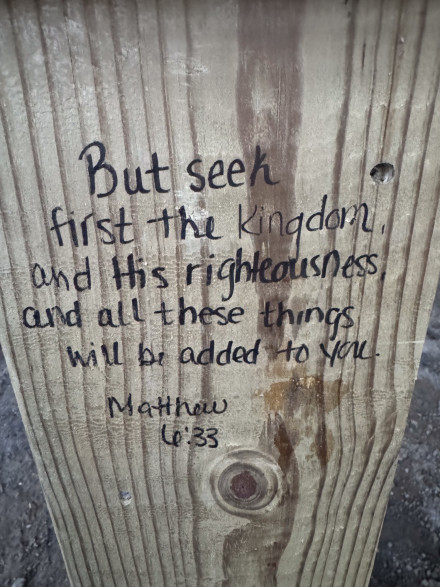 But seek
first the kingdom,
and His righteousness,
and all these things
will be added to you.
Matthew
6:33